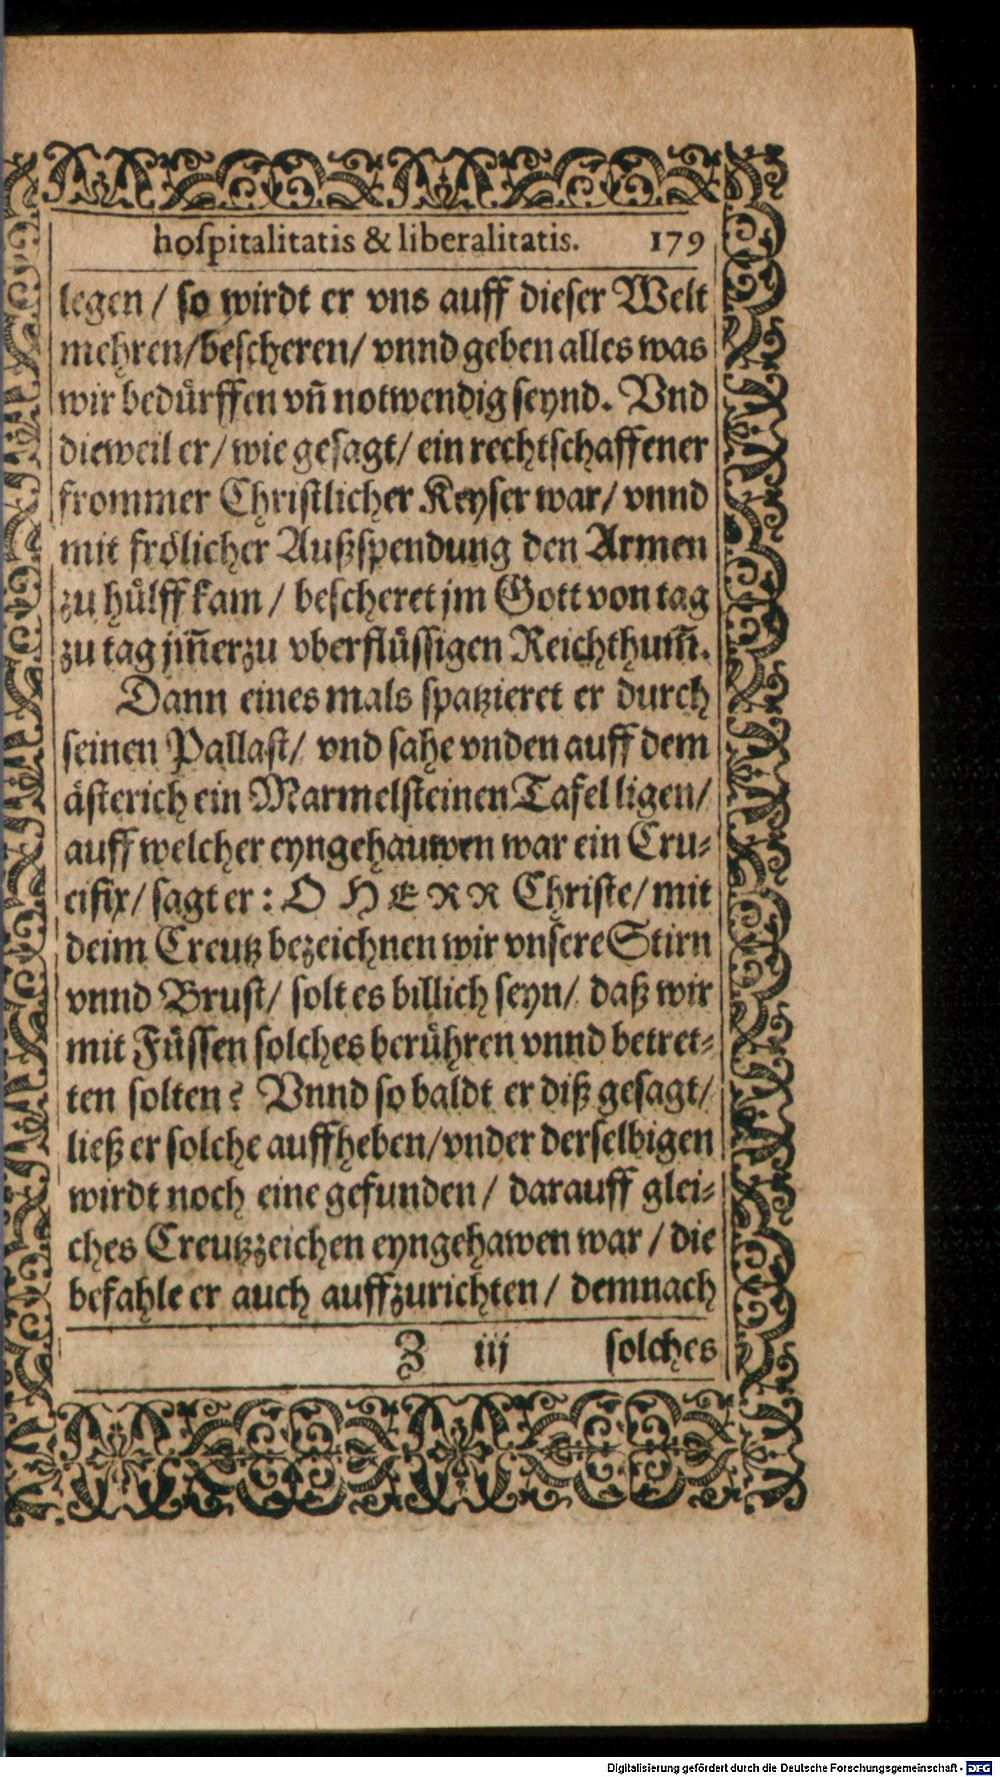 hospitalitatis & liberalitatis. 179
legen / so wirdt er vns auff dieser Welt
mehren/bescheren/ vnnd geben alles was
wir bedürffen vñ notwendig seynd. Vnd
dieweil er/ wie gesagt/ ein rechtschaffener
frommer Christlicher Keyser war/ vnnd
mit frölicher Außspendung den Armen
zu hülff kam / bescheret jm Gott von tag
zu tag jm̃erzu vberflüssigen Reichthum̃.
Dann eines mals spatzieret er durch
seinen Pallast/ vnd sahe vnden auff dem
ästerich ein Marmelsteinen Tafel ligen/
auff welcher eyngehauwen war ein Cru-
cifix/ sagt er: O HERR Christe/ mit
deim Creutz bezeichnen wir vnsere Stirn
vnnd Brust/ solt es billich seyn/ daß wir
mit Füssen solches berühren vnnd betret-
ten solten? Vnnd so baldt er diß gesagt/
ließ er solche auffheben/vnder derselbigen
wirdt noch eine gefunden/ darauff glei-
ches Creutzzeichen eyngehawen war / die
befahle er auch auffzurichten/ demnach
Z iij solches
Digitalisierung gefördert durch die Deutsche Forschungsgemeinschaft - DFG